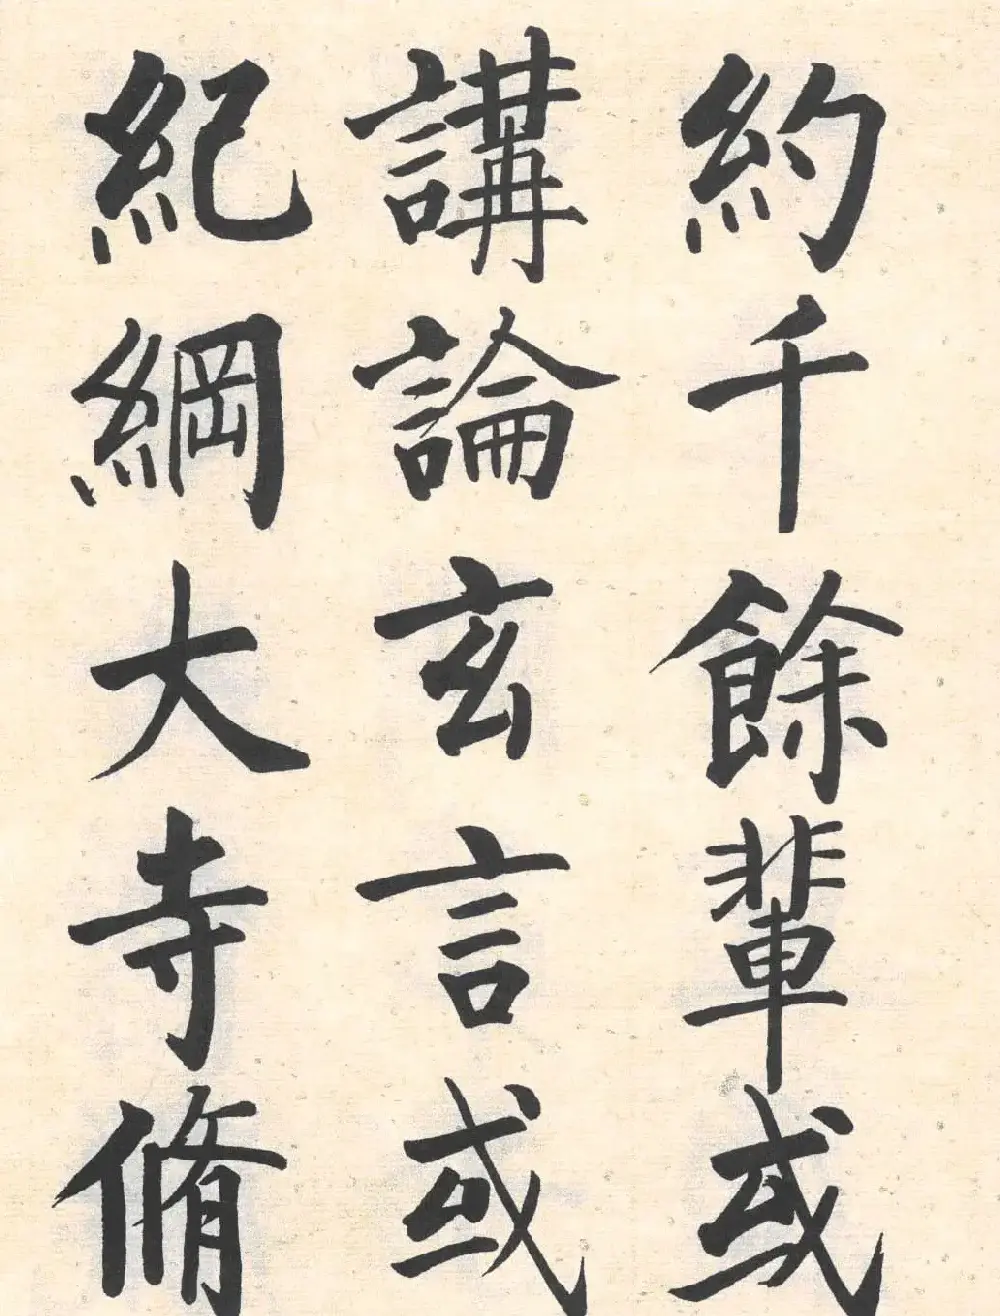 約千餘輩或
講論玄言或
紀綱大寺脩